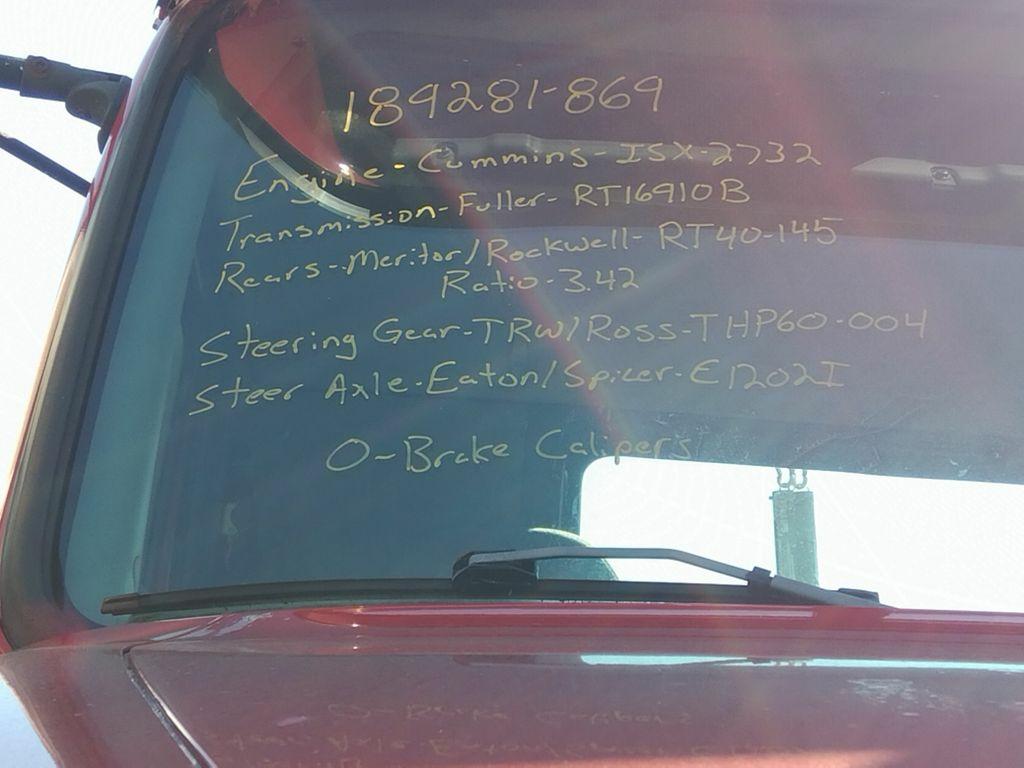 189281-869
Engine-Cummins-ISX-2732
Transmission-Fuller-RT16910B
Rears-Meritor/Rockwell-RT40-145
Ratio-3.42
Steering Gear-TRW/Ross-THP60-004
Steer Axle-Eaton/Spicer-E1202I
0-Brake Calipers